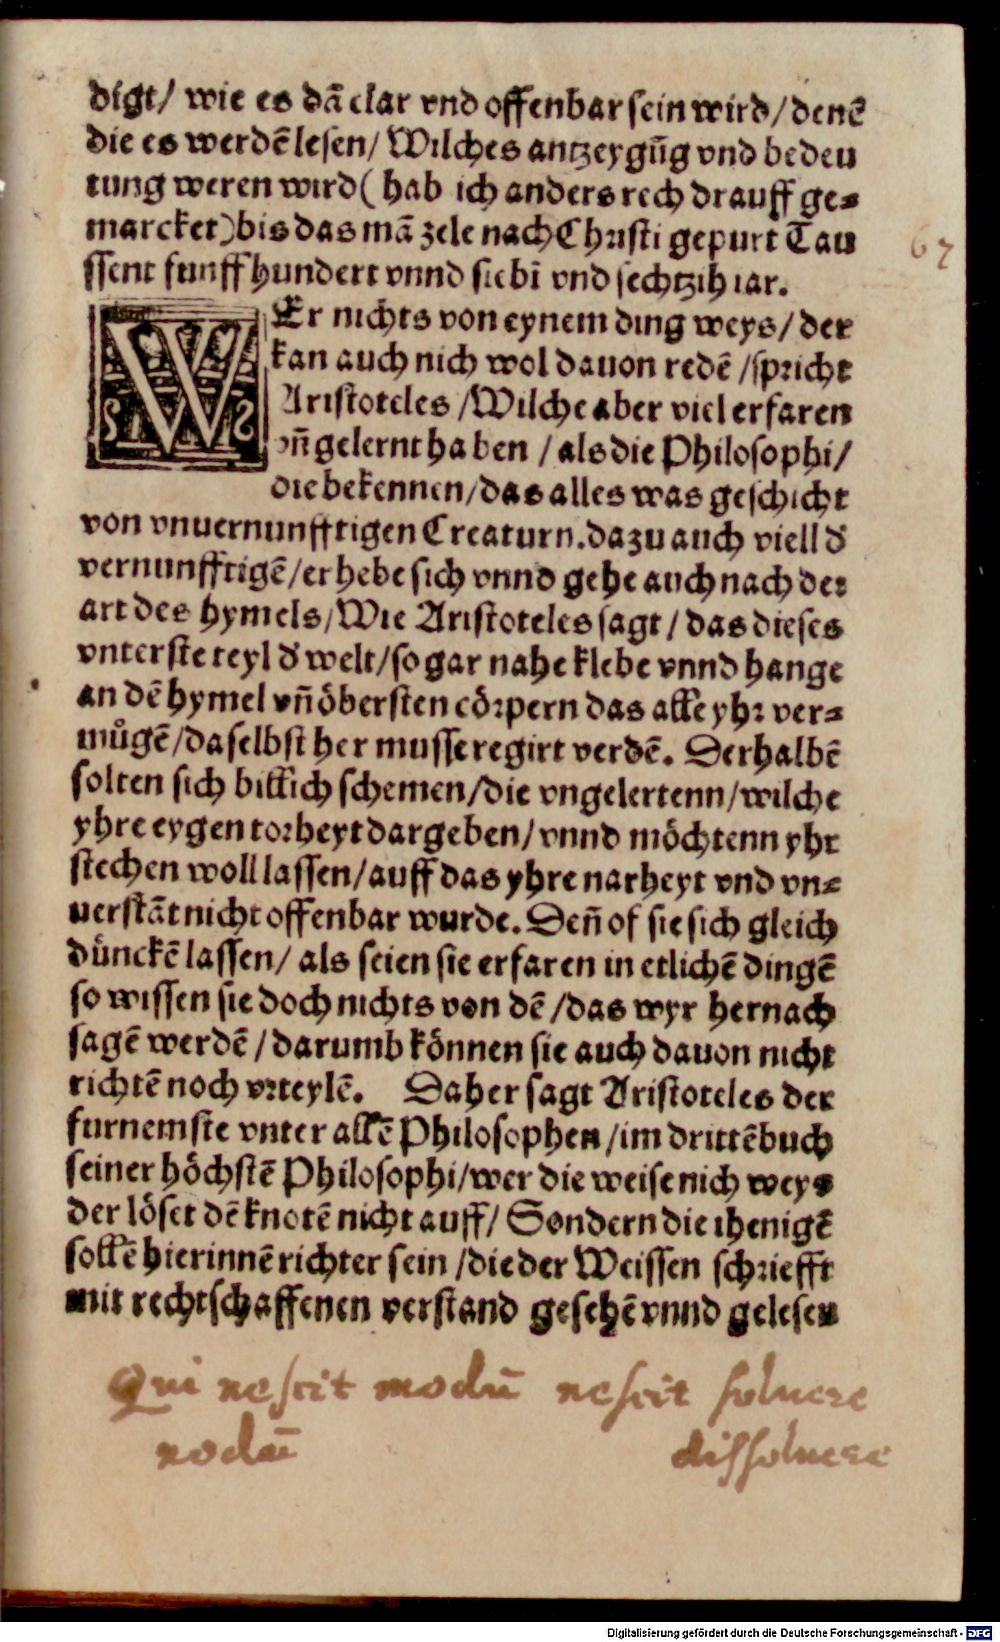 digt/ wie es dā clar vnd offenbar sein wird/ denē
die es werdē lesen/ Wilches antzeygūg vnd bedeu
tung weren wird( hab ich anders rech drauff ge⸗
marcket) bis das mā zele nach Christi gepurt Tau
ssent funff hundert vnnd siebī vnd sechtzih iar.
67
WEr nichts von eynem ding weys/ der
kan auch nich wol dauon redē /spricht
Aristoteles /Wilche aber viel erfaren
vñ gelernt haben / als die Philosophi/
die bekennen/das alles was geschicht
von vnuernunfftigen Creaturn.dazu auch viell d̕
vernunfftigē/er hebe sich vnnd gehe auch nach der
art des hymels/Wie Aristoteles sagt/ das dieses
vnterste teyl d̕ welt/so gar nahe klebe vnnd hange
an dē hymel vñ öbersten cörpern das alle yhr ver⸗
můgē/daselbst her musse regirt verdē. Derhalbē
solten sich billich schemen/die vngelertenn/wilche
yhre eygen torheyt dargeben/vnnd möchtenn yhr
stechen woll lassen/auff das yhre narheyt vnd vn⸗
uerstāt nicht offenbar wurde. Deñ of sie sich gleich
dünckē lassen/ als seien sie erfaren in etlichē dingē
so wissen sie doch nichts von dē /das wyr hernach
sagē werdē /darumb können sie auch dauon nicht
richtē noch vrteylē. Daher sagt Aristoteles der
furnemste vnter allē Philosophen /im drittē buch
seiner höchstē Philosophi/wer die weise nich weys
der löset dē knotē nicht auff/ Sondern die ihenigē
sollē hierinnē richter sein /die der Weissen schriefft
mit rechtschaffenen verstand gesehē vnnd gelesen
Qui nescit modū nescit soluere
nodū dissoluere
Digitalisierung gefördert durch die Deutsche Forschungsgemeinschaft - DFG